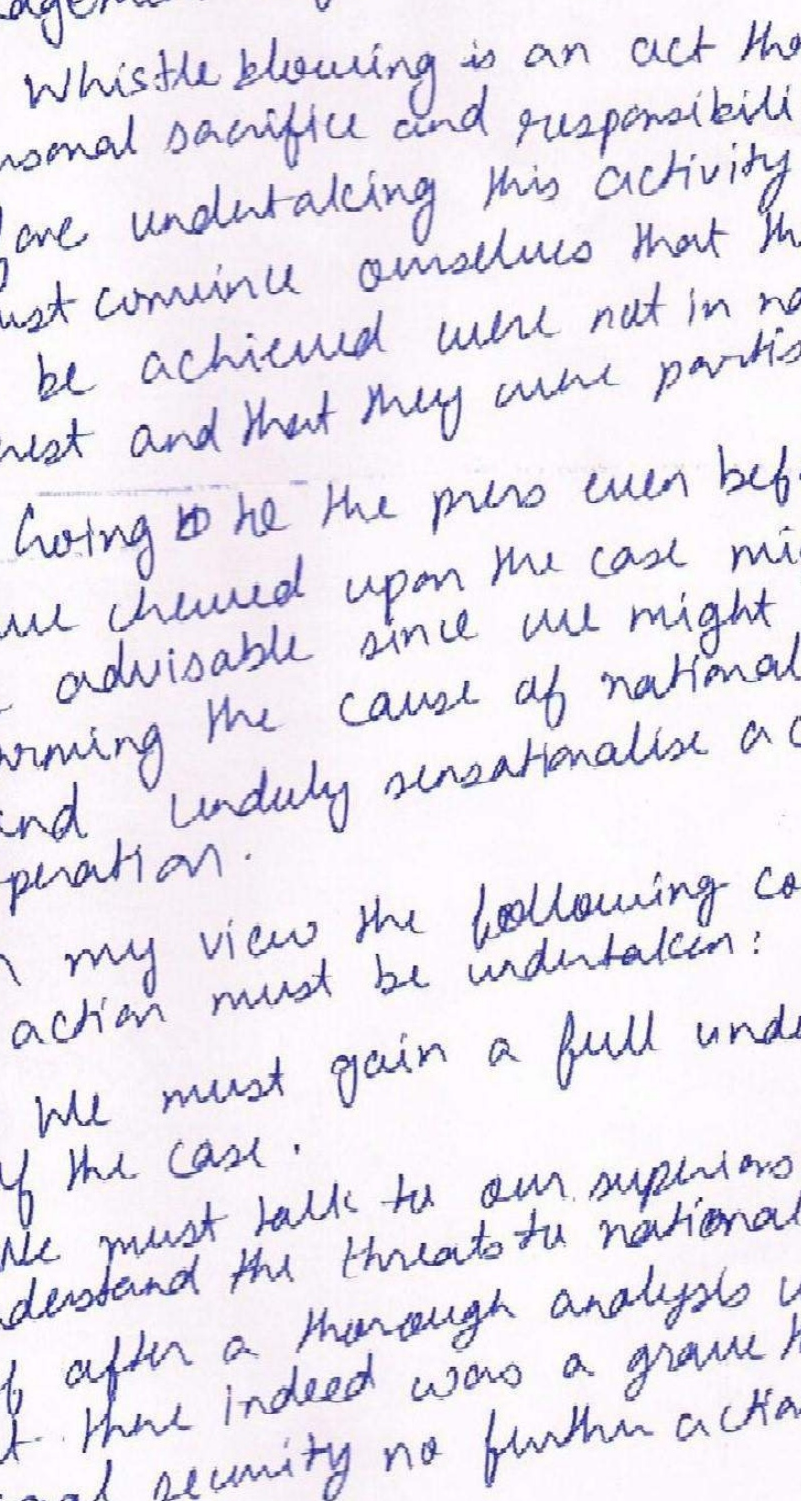 agem
Whistle blowing is an act tha
rsonal sacrifice and responsibili
fore undertaking this activity
ust convince ourselves that th
be achieved were not in na
rest and that they were partis
Going to he the press even bef
we chewed upon the case mi
advisable since we might
arming the cause of national
and unduly sensationalise a c
peration.
n my view the following co
action must be undertaken:
We must gain a full unde
of the case.
We must talk to our superiors
derstand the threats to national
if after a thorough analysis w
t there indeed was a grave th
onal security no further actio